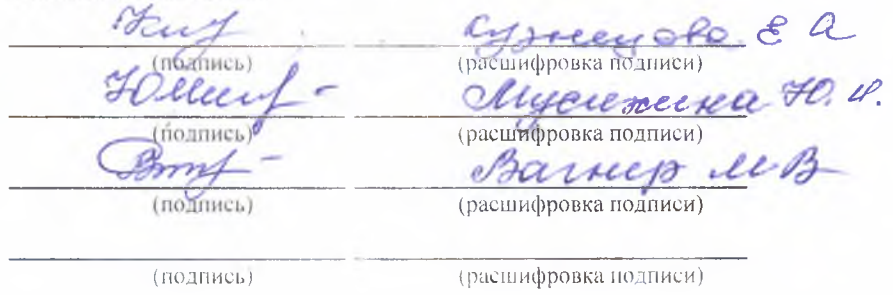 Кузнецова Е А
(подпись) (расшифровка подписи)
Ю. И.
(подпись) (расшифровка подписи)
Вагнер М В
(подпись) (расшифровка подписи)
(подпись) (расшифровка подписи)